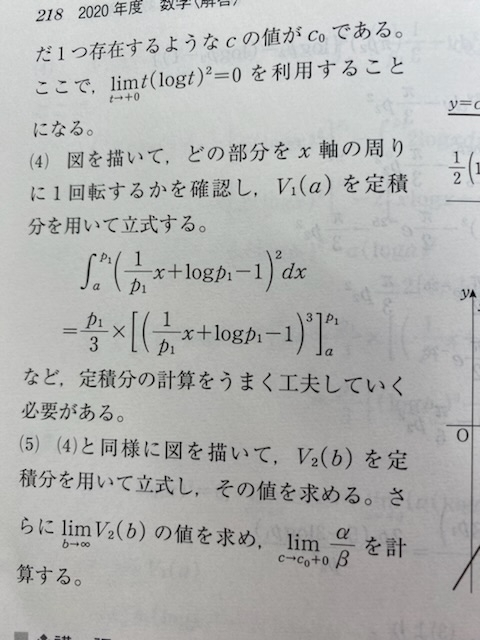 218 2020年度 数学〈解答〉
だ1つ存在するようなcの値がc₀である。
ここで, lim_{t→+0} t(logt)²=0 を利用すること
になる。
(4) 図を描いて, どの部分をx軸の周り
に1回転するかを確認し, V₁(a) を定積
分を用いて立式する。
∫_a^{p₁} (1/p₁ x+logp₁−1)² dx
= p₁/3 × [(1/p₁ x+logp₁−1)³]_a^{p₁}
など, 定積分の計算をうまく工夫していく
必要がある。
(5) (4)と同様に図を描いて, V₂(b) を定
積分を用いて立式し, その値を求める。さ
らに lim_{b→∞} V₂(b) の値を求め, lim_{c→c₀+0} α/β を計
算する。
y
O